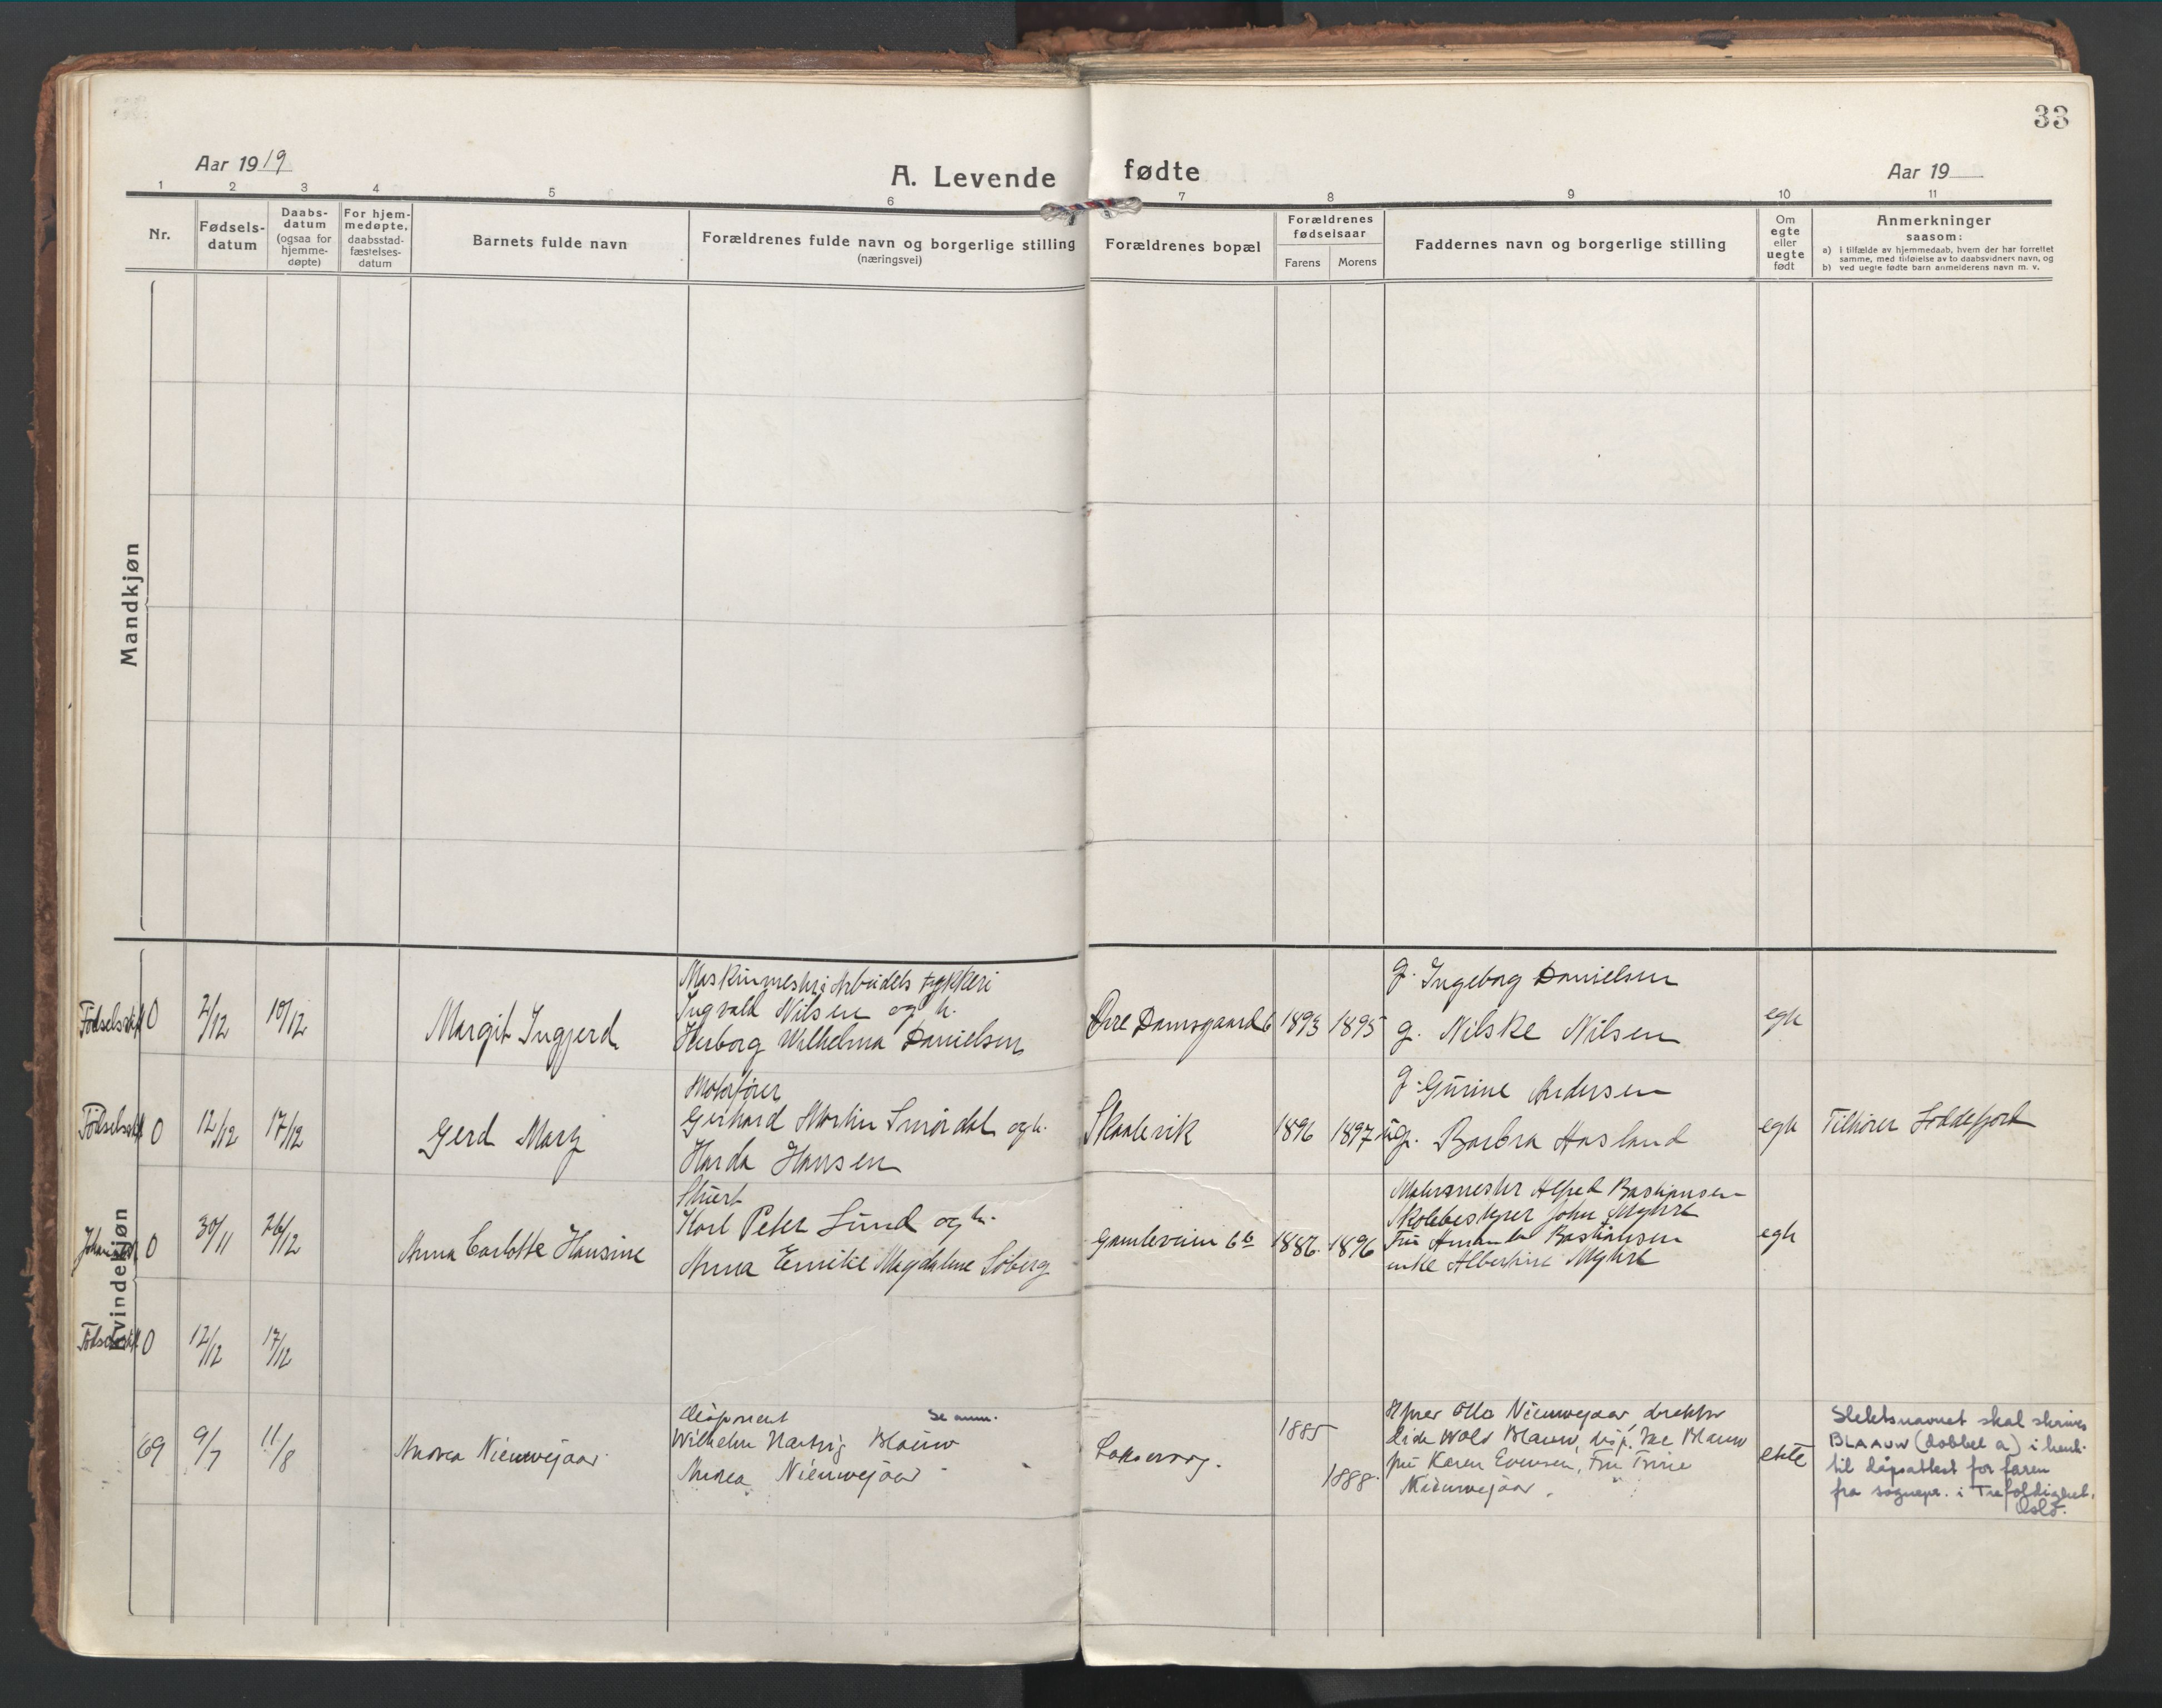 33
Aar 1919
A. Levende fødte
Aar 19
1 2 3 4 5 6 7 8 9 10 11
Nr.
Fødsels-
datum
Daabs-
datum
(ogsaa for
hjemme-
døpte)
For hjem-
medøpte,
daabsstad-
fæstelses-
datum
Barnets fulde navn
Forældrenes fulde navn og borgerlige stilling
(næringsvei)
Forældrenes bopæl
Forældrenes
fødselsaar
Farens Morens
Faddernes navn og borgerlige stilling
Om
egte
eller
uegte
født
Anmerkninger
saasom:
a) i tilfælde av hjemmedaab, hvem der har forrettet
samme, med tilføielse av to daabsvidners navn, og
b) ved uegte fødte barn anmelderens navn m. v.
Mandkjøn
Kvindekjøn
0 2/12 10/12
Margit Ingjerd
Ingvald Nilsen og h.
Herborg Wilhelma Danielsen
Øvre Damsgaard 6
1893 1895
g. Ingeborg Danielsen
g. Nilske Nilsen
egte
0 12/12 17/12
Gerd Mary
Motorfører
Gerhard Martin Smørdal og h.
Harda Hansen
Skaalevik
1896 1897
g. Gurine Andersen
ug. Barbra Hasland
egte
Tilhører Loddefjord
0 30/11 26/12
Anna Carlotte Hansine
Stuert
Karl Peter Lund og h.
Anna Emilie Magdalene Söberg
Gamleveien 6b
1886 1896
Malermester Alfred Bastiansen
Skolebestyrer John Myhre
Fru Amanda Bastiansen
enke Albertine Myhre
egte
0 12/12 17/12
69 9/7 11/8
Andrea Nieuwejaar
disponent
se anm.
Wilhelm Hartvig Blauw
Andrea Nieuwejaar
Laksevaag.
1885
1888
Otto Nieuwejaar, direktør
Blauw, disp. Blauw
fru Karen Evensen, Fru Trine
Nieuwejaar.
ekte
Slektsnavnet skal skrives
BLAAUW (dobbel a) i henh.
til dåpsattest for faren
fra sognepr. i Trefoldighet,
Oslo.